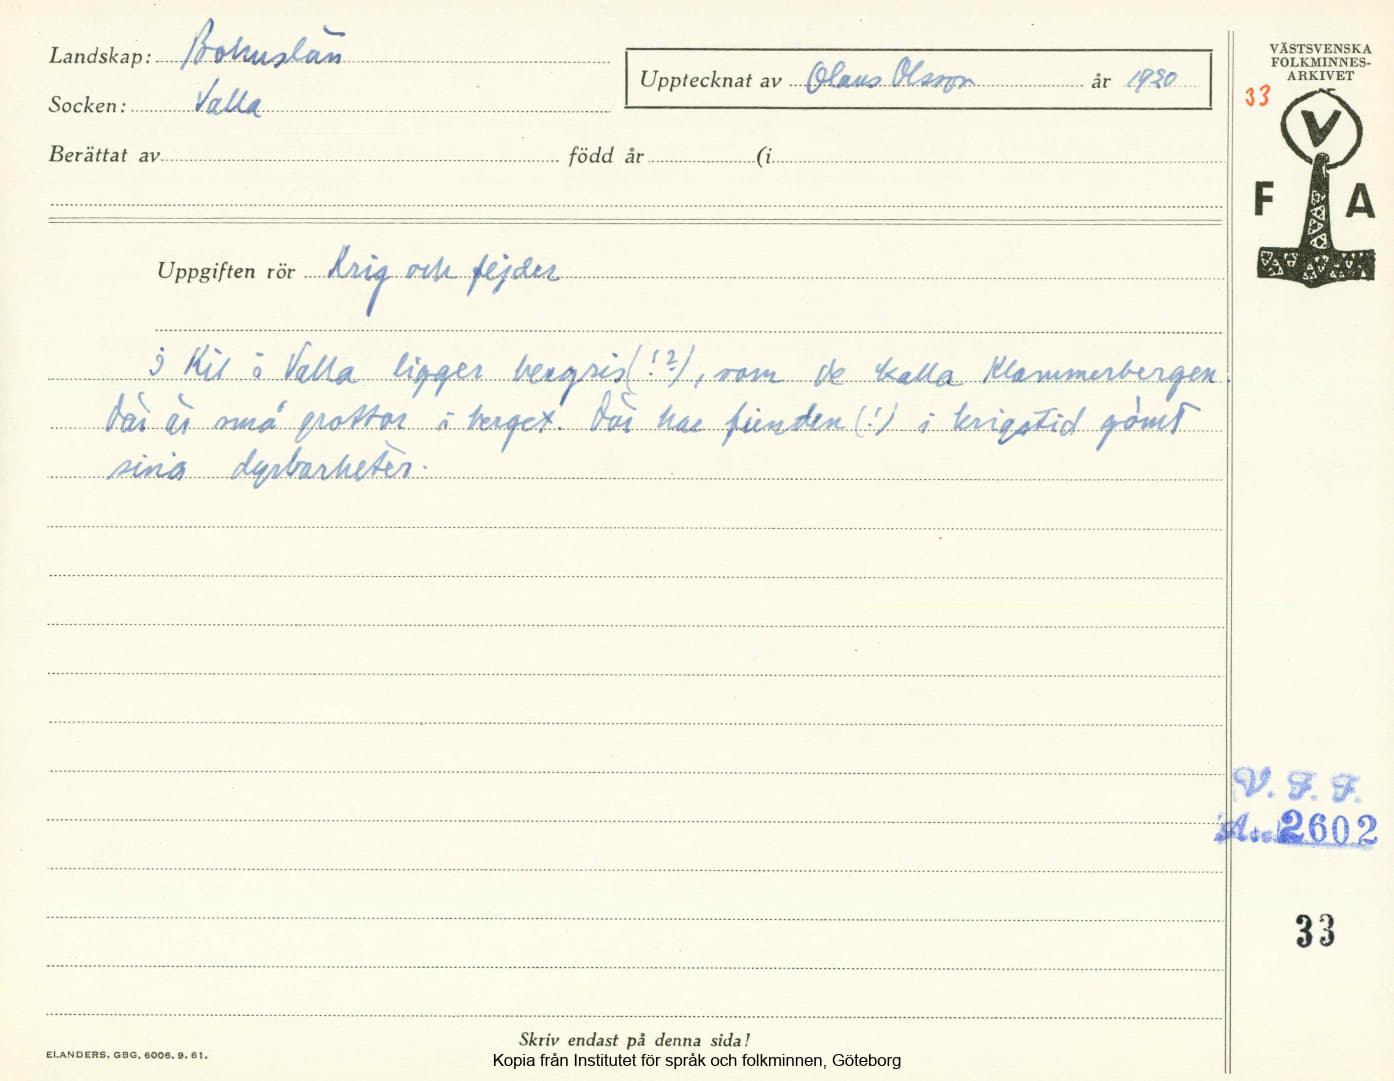 Landskap: Bohuslän
Socken: Valla
Upptecknat av Olaus Olsson år 1920
Berättat av född år (i
VÄSTSVENSKA
FOLKMINNES-
ARKIVET
33
V
F A
Uppgiften rör Krig och fejder
I Kil i Valla ligger bergris(!?), som de kalla Klammerbergen.
Där är små grottor i berget. Där har fienden (!) i krigstid gömt
sina dyrbarheter.
V. F. F.
2602
33
Skriv endast på denna sida!
ELANDERS, GBG, 6006. 9. 61.
Kopia från Institutet för språk och folkminnen, Göteborg